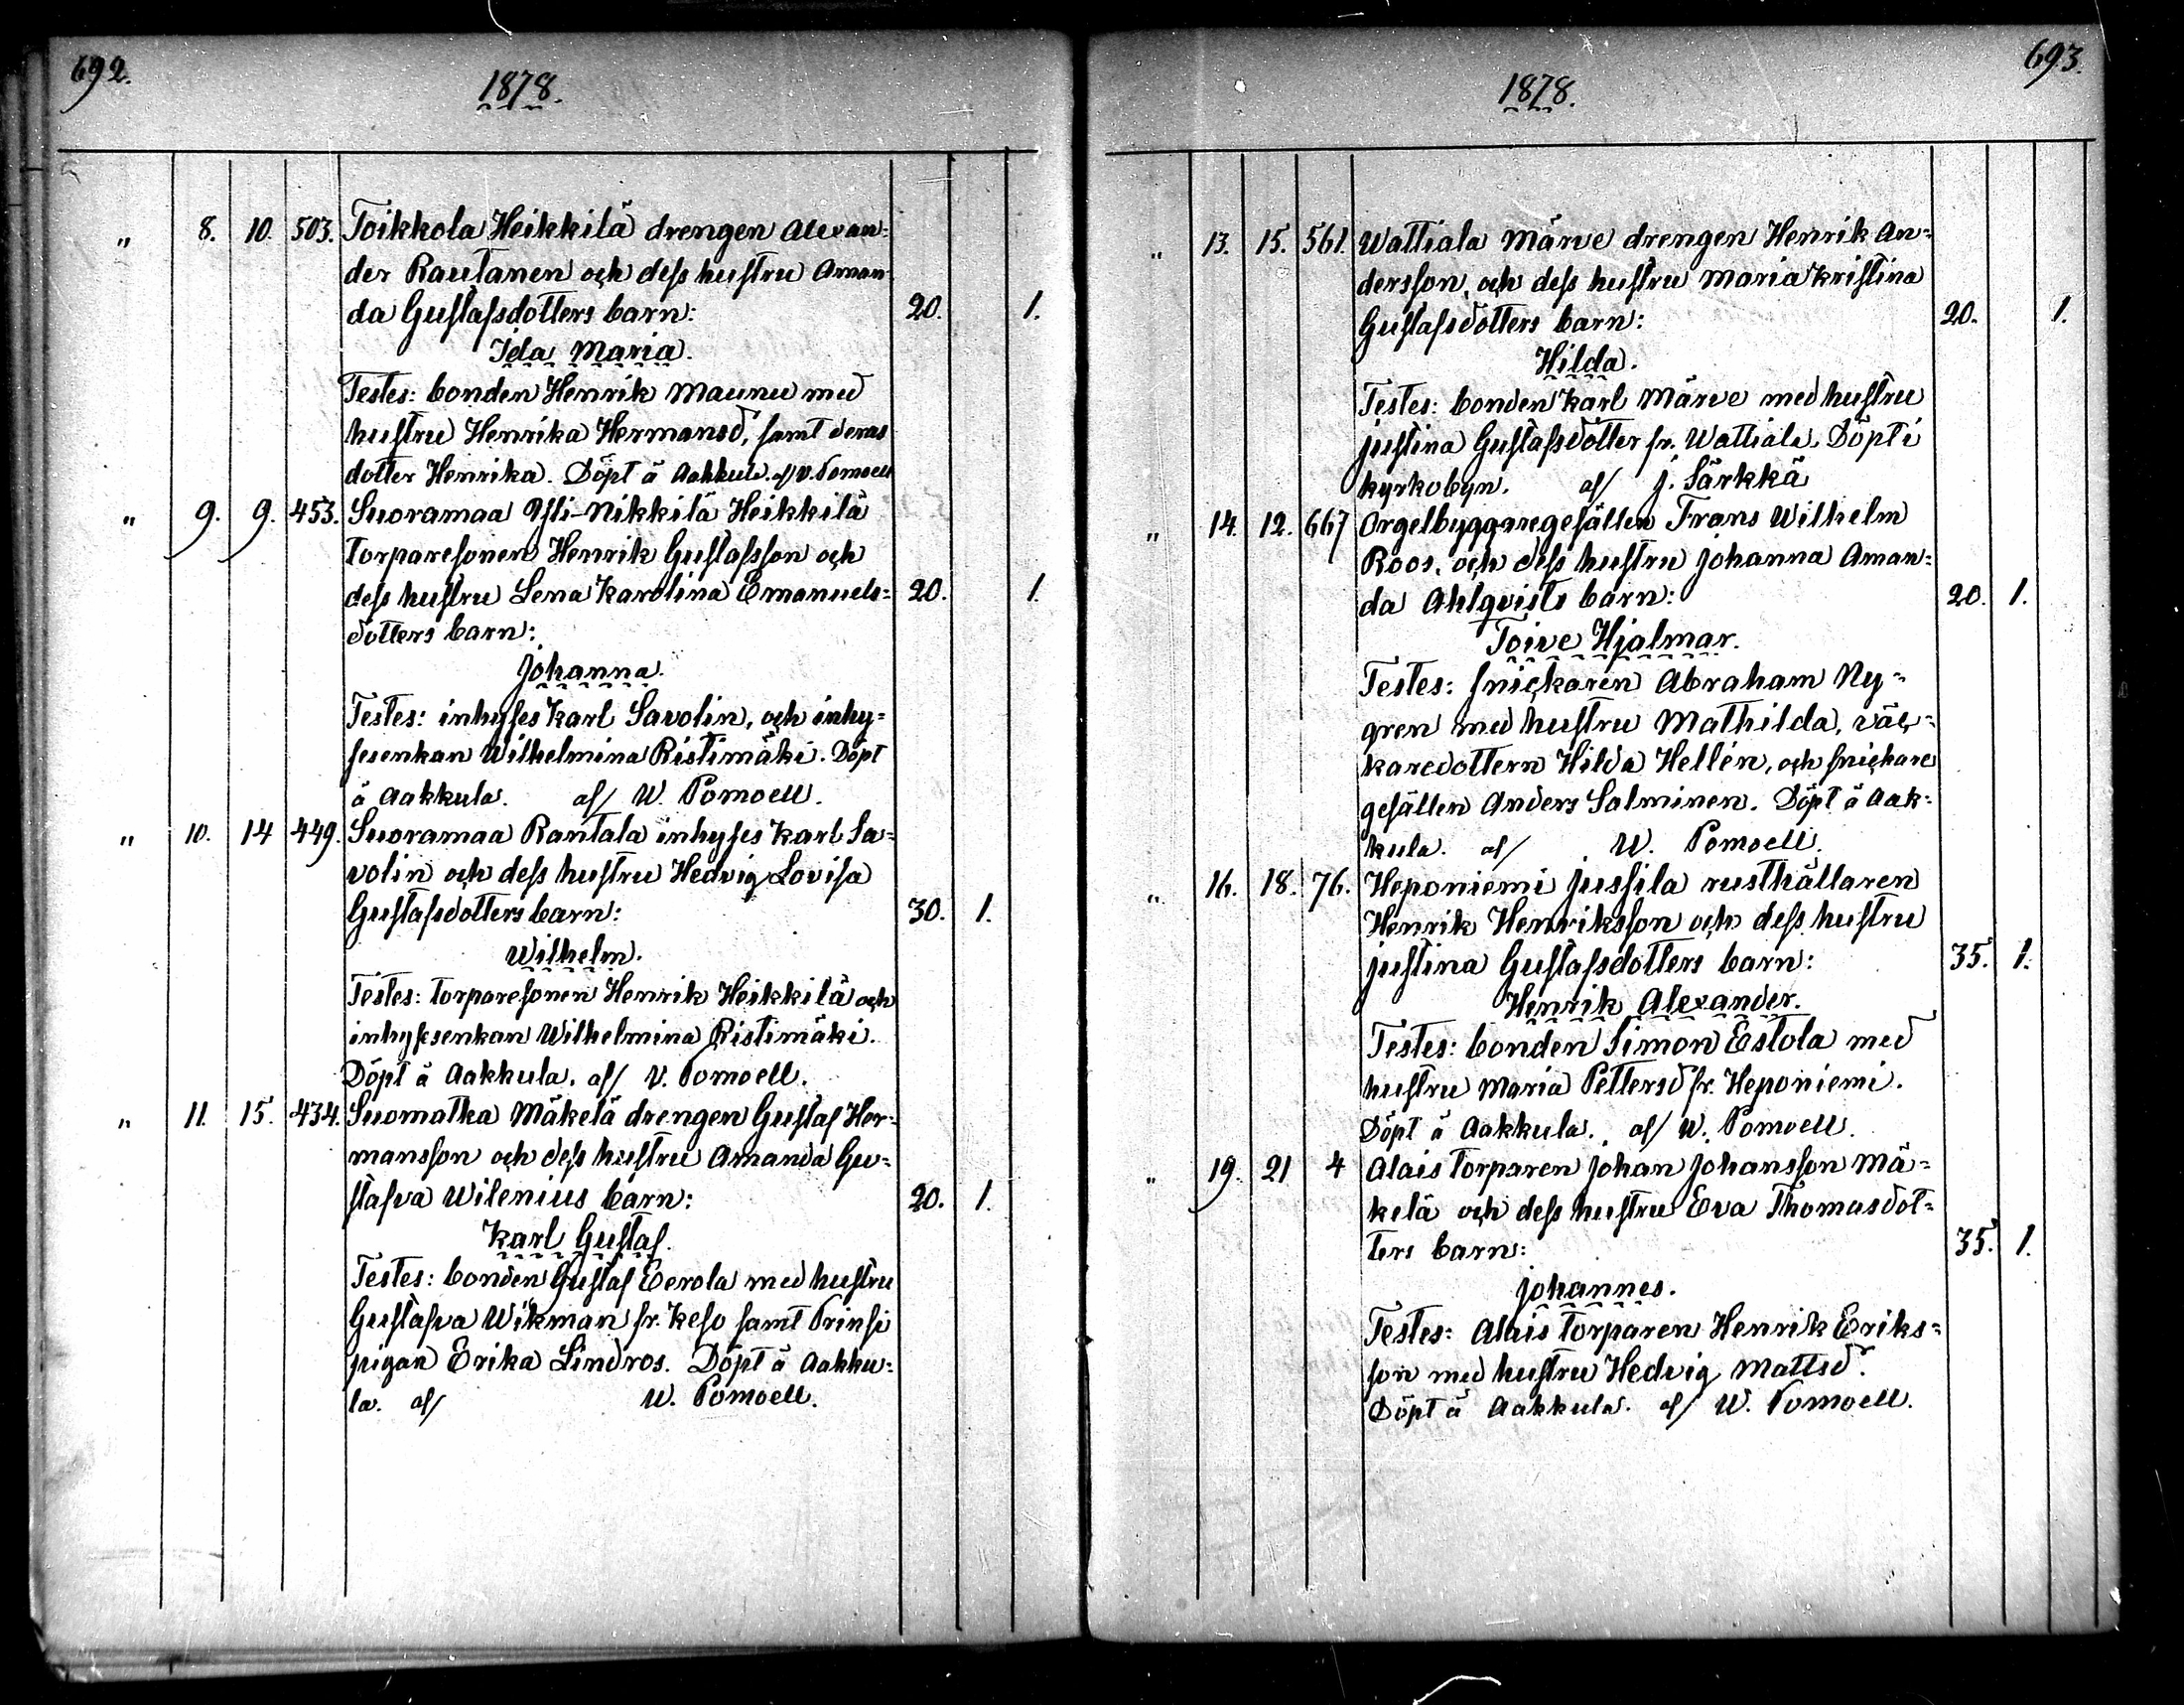 692.
1878.
" 8. 10. 503. Toikkola Heikkilä drengen Alexan=
der Rautanen och dess hustru Aman
da Gustafsdotters barn: 20. 1.
Ida Maria.
Testes: bonden Henrik Maunu med
hustru Henrika Hermansd, samt deras
dotter Henrika. Döpt å Aakkula. af V. Pomoell
" 9. 9. 453. Suoramaa Yli-Nikkilä Heikkilä
torparesonen Henrik Gustafsson och
dess hustru Lena Karolina Emanuels= 20. 1.
dotters barn:
Johanna.
Testes: inhyses Karl Savolin, och inhy=
sesenkan Wilhelmina Ristimäki. Döpt
å Aakkula. af W. Pomoell.
" 10. 14 449. Suoramaa Rantala inhyses Karl Sa=
volin och dess hustru Hedvig Lovisa
Gustafsdotters barn: 30. 1.
Wilhelm.
Testes: torparesonen Henrik Heikkilä och
inhysesenkan Wilhelmina Ristimäki.
Döpt å Aakkula. af V. Pomoell.
" 11. 15. 434. Suomatka Mäkelä drengen Gustaf Her=
mansson och dess hustru Amanda Gu=
stafva Wilenius barn: 20. 1.
Karl Gustaf.
Testes: bonden Gustaf Eerola med hustru
Gustafva Wikman fr. Keso samt Prinsi
pigan Erika Lindros. Döpt å Aakku=
la. af W. Pomoell.
693.
1878.
" 13. 15. 561. Wattiala Märve drengen Henrik An=
dersson, och dess hustru Maria Kristina
Gustafsdotters barn: 20. 1.
Hilda.
Testes: bonden Karl Märve med hustru
Justina Gustafsdotter fr. Wattiala. Döpt i
kyrkobyn. af J. Särkkä
" 14. 12. 667 Orgelbyggaregesällen Frans Wilhelm
Roos, och dess hustru Johanna Aman=
da Ahlqvists barn: 20. 1.
Toive Hjalmar.
Testes: snickaren Abraham Ny=
gren med hustru Mathilda,
karedottern Hilda Hellén, och snickare
gesällen Anders Salminen. Döpt å Aak=
kula. af W. Pomoell.
" 16. 18. 76. Heponiemi Jussila rusthållaren
Henrik Henriksson och dess hustru
Justina Gustafsdotters barn: 35. 1.
Henrik Alexander.
Testes: bonden Simon Estola med
hustru Maria Pettersd fr. Heponiemi.
Döpt å Aakkula. af W. Pomoell.
" 19. 21 4 Alais torparen Johan Johansson Mä=
kelä och dess hustru Eva Thomasdot=
ters barn: 35. 1.
Johannes.
Testes: Alais torparen Henrik Eriks=
son med hustru Hedvig Mattsd.
Döpt å Aakkula. af W. Pomoell.